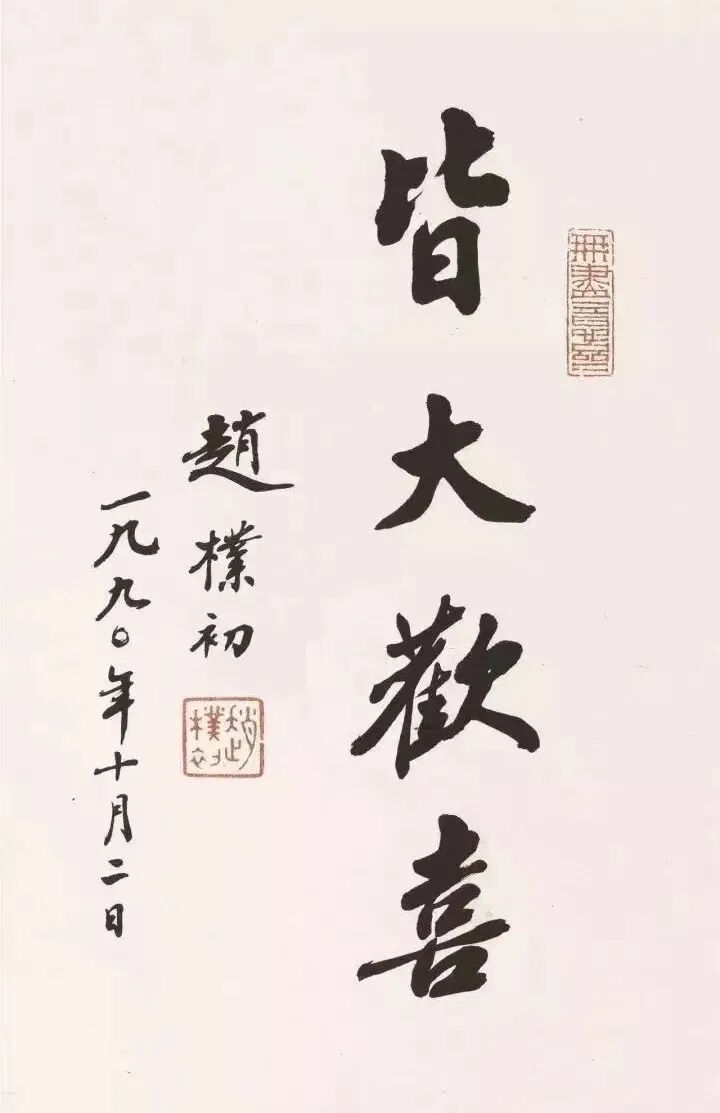 皆大歡喜
趙樸初
一九九〇年十月二日
趙樸初
無盡意齋